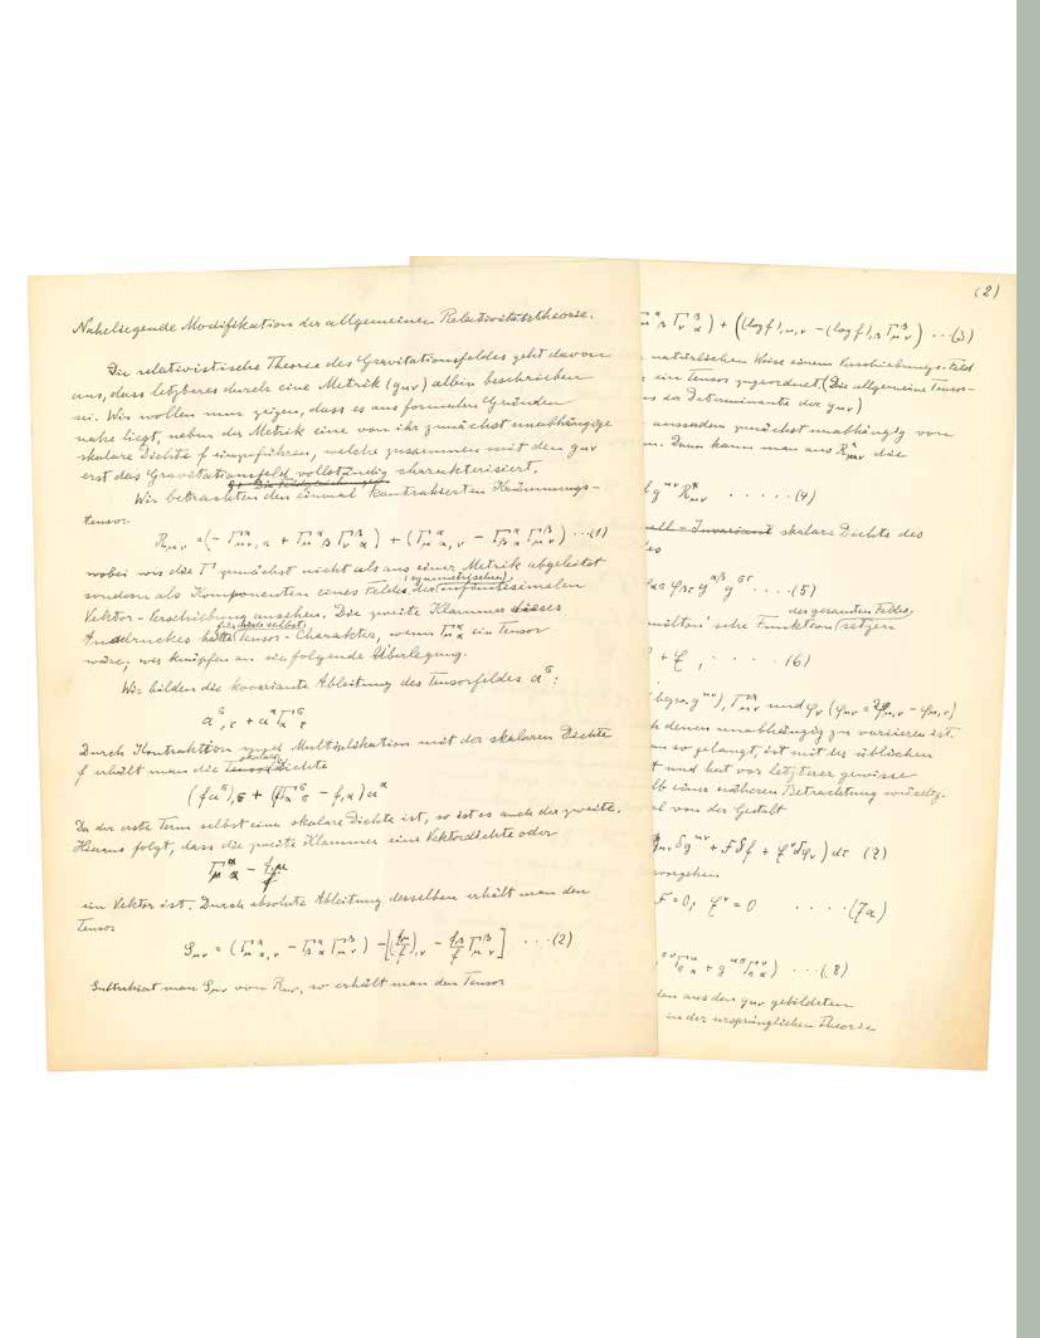 Naheliegende Modifikation der allgemeinen Relativitätstheorie.
Die relativistische Theorie des Gravitationsfeldes geht davon
aus, dass letzteres durch eine Metrik (gμν) allein beschrieben
sei. Wir wollen nun zeigen, dass es aus formalen Gründen
nahe liegt, neben der Metrik eine von ihr zunächst unabhängige
skalare Dichte f einzuführen, welche zusammen mit den gμν
erst das Gravitationsfeld vollständig charakterisiert.
Wir betrachten den einmal kontrahierten Krümmungs-
tensor
Rμν = (- Γμ^α ν,α + Γμ^α β Γν^β α) + (Γμ^α α,ν - Γβ^α α Γμ^β ν) ...(1)
wobei wir die Γ zunächst nicht als aus einer Metrik abgeleitet
(symmetrischen)
sondern als Komponenten eines Feldes der infinitesimalen
Vektor-Verschiebung ansehen. Die zweite Klammer dieses
für sich selbst
Ausdruckes hätte Tensor-Charakter, wenn Γμ^α α ein Tensor
wäre; wir knüpfen an sie folgende Überlegung.
Wir bilden die kovariante Ableitung des Tensorfeldes a^σ:
a^σ,τ + a^α Γα^σ τ
Durch Kontraktion und Multiplikation mit der skalaren Dichte
skalare
f erhält man die Dichte
(f a^σ),σ + (fΓα^σ σ - f,α) a^α
Da der erste Term selbst eine skalare Dichte ist, so ist es auch der zweite.
Hieraus folgt, dass die zweite Klammer eine Vektordichte oder
Γμ^α α - f,μ/f
ein Vektor ist. Durch absolute Ableitung desselben erhält man den
Tensor
Sμν = (Γμ^α α,ν - Γβ^α α Γμ^β ν) - [(f,μ/f),ν - f,β/f Γμ^β ν] ...(2)
Subtrahiert man Sμν von Rμν, so erhält man den Tensor
(2)
Γμ^α β Γν^β α) + ((log f),μ,ν - (log f),β Γμ^β ν) ...(3)
natürlichen Weise einem Verschiebungs-Feld
ein Tensor zugeordnet. (Die allgemeine Tensor-
der Determinante der gμν)
ausserdem zunächst unabhängig von
Dann kann man aus R*μν die
g^μν R*μν .....(4)
skalare Dichte des
φστ g^αβ g^στ ....(5)
des gesamten Feldes
Funktion setzen
.....(6)
(bezw. g^μν), Γμ^α ν und φν (φμν = φμ,ν - φν,μ)
denen unabhängig zu variieren ist.
so gelangt, ist mit der üblichen
und hat vor letzterer gewisse
einer näheren Betrachtung würdig.
von der Gestalt
Gμν δg^μν + F δf + φ^ν δφν) dτ (7)
vorgehen
F = 0; φ^ν = 0 ....(7a)
...(8)
aus den gμν gebildeten
in der ursprünglichen Theorie